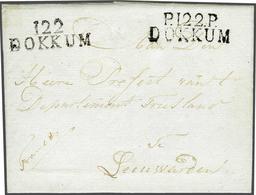 122
DOKKUM
P.122.P.
DOKKUM
Aan Den
Heere Prefect van't
Departement Friesland
Te
Leeuwarden